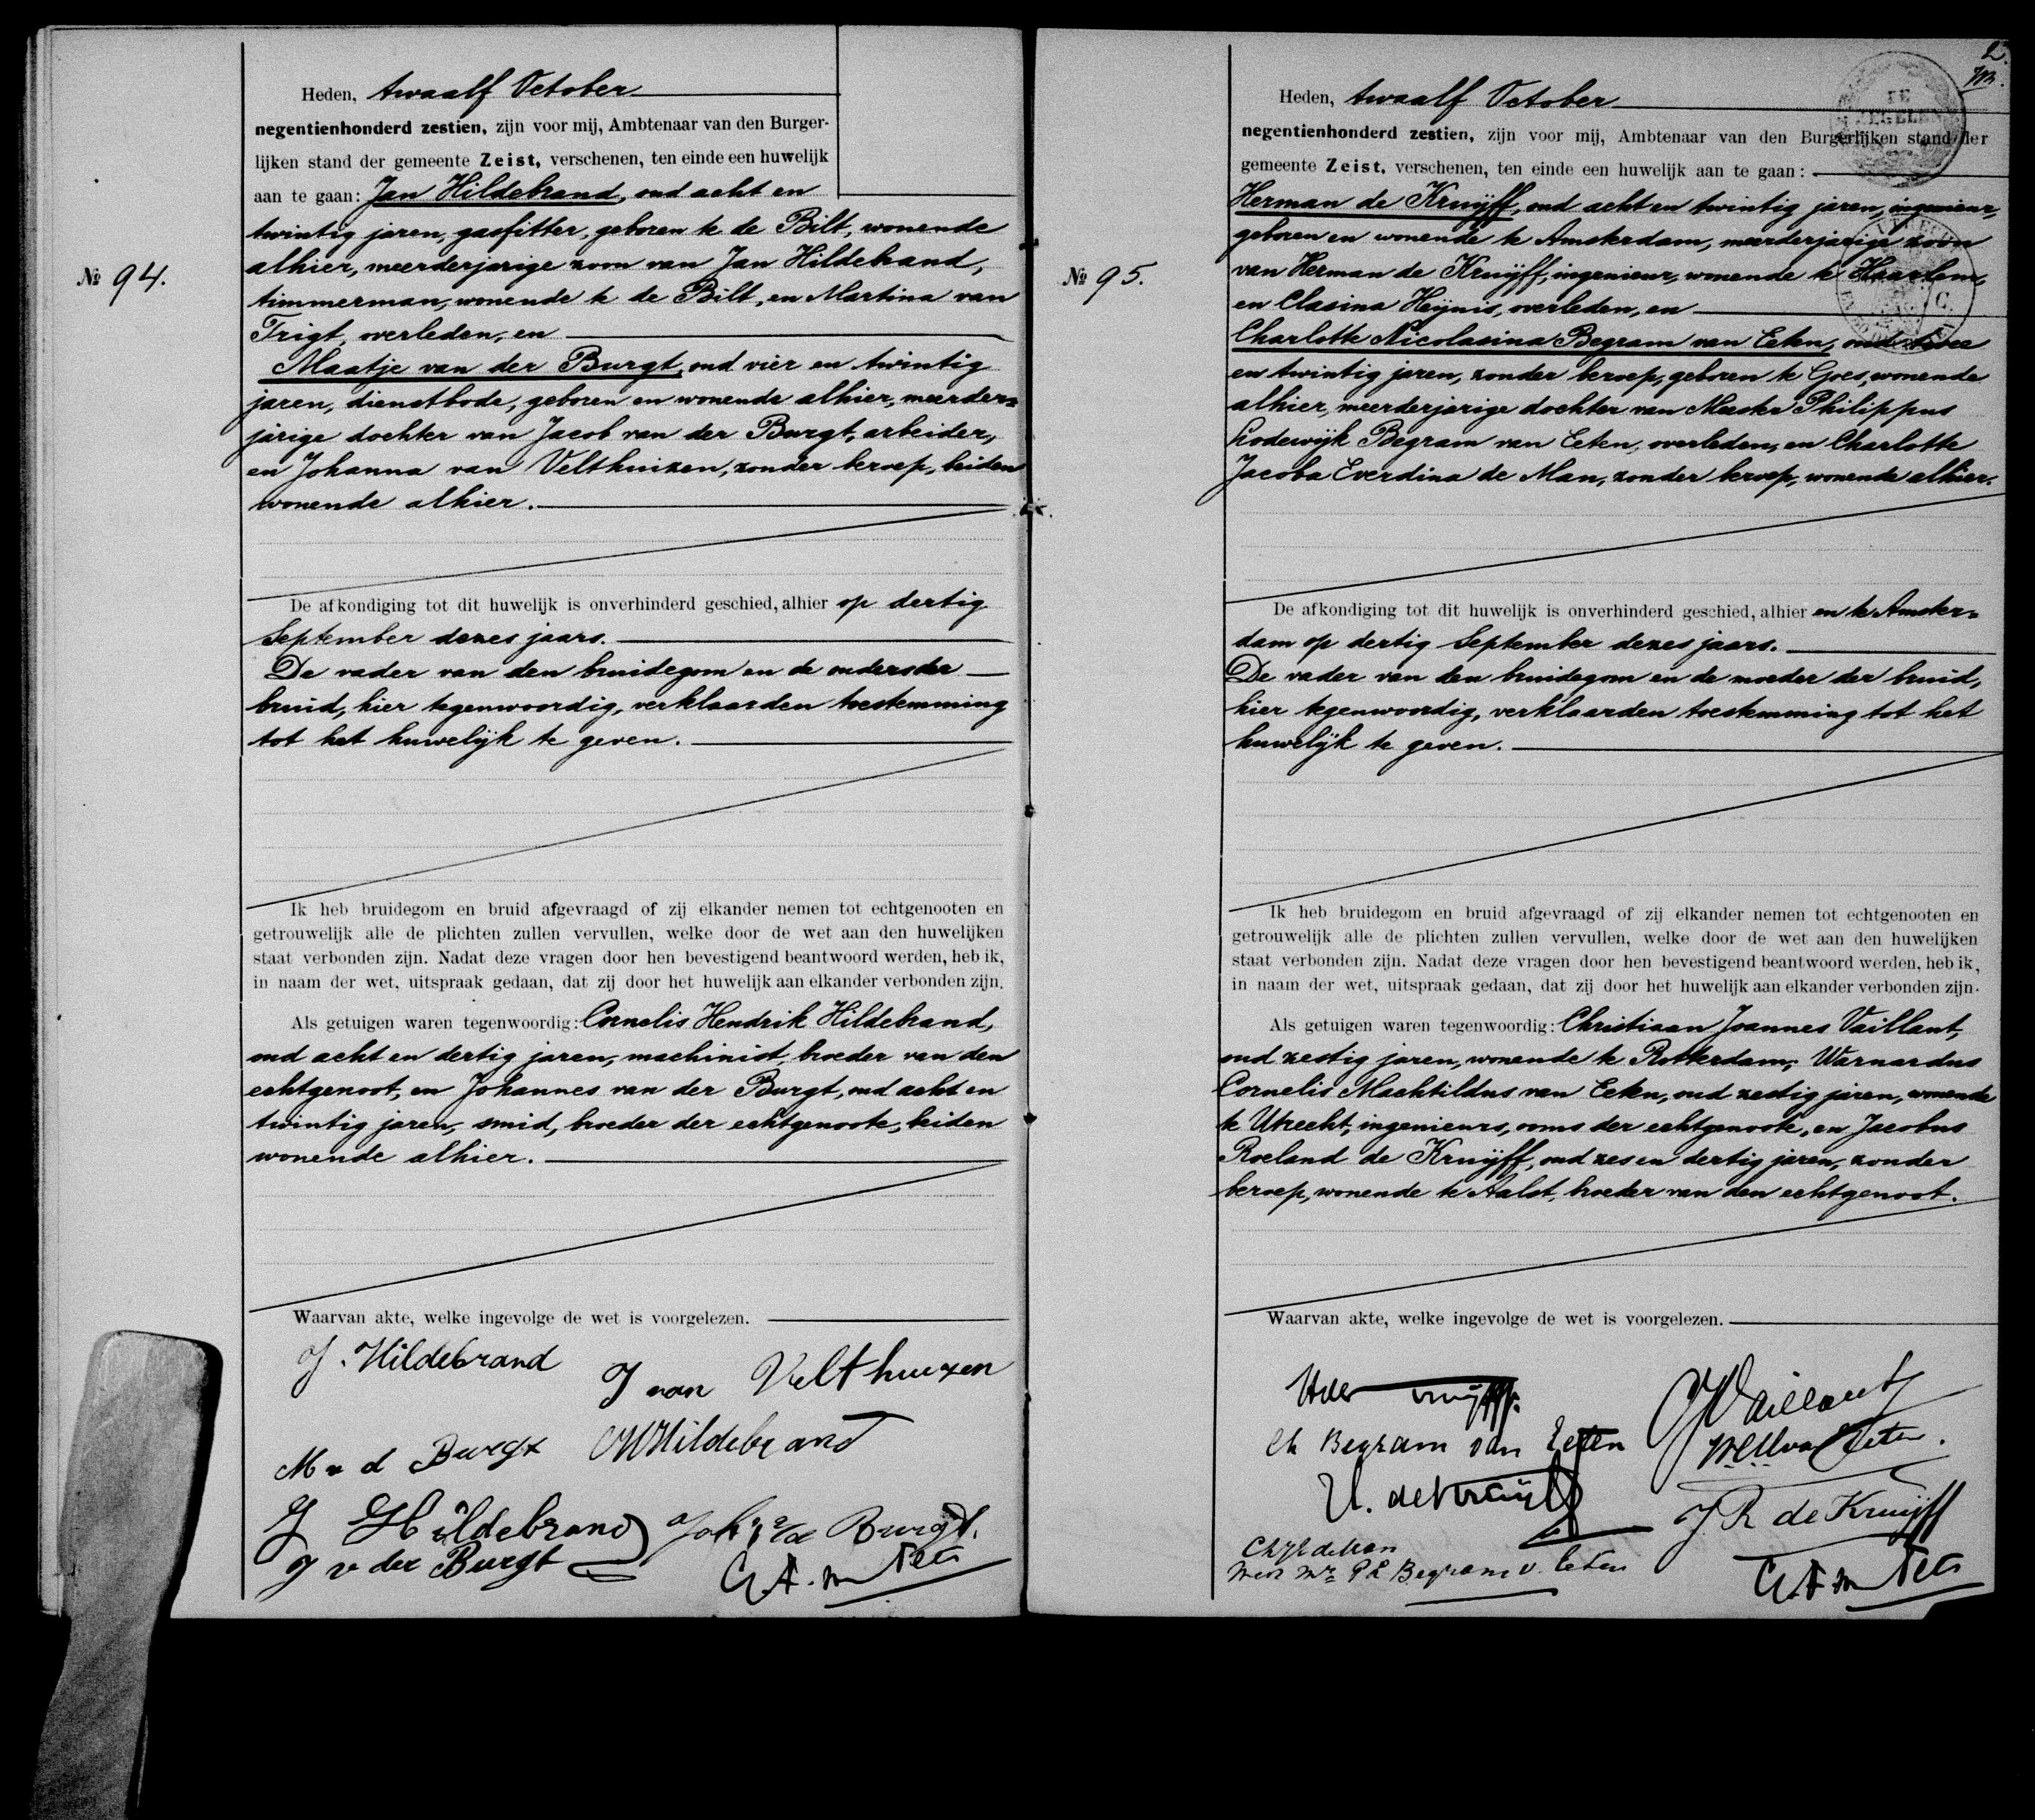 Heden, twaalf October
negentienhonderd zestien, zijn voor mij, Ambtenaar van den Burger-
lijken stand der gemeente Zeist, verschenen, ten einde een huwelijk
aan te gaan: Jan Hildebrand, oud acht en
twintig jaren, gasfitter, geboren te de Bilt, wonende
alhier, meerderjarige zoon van Jan Hildebrand,
timmerman, wonende te de Bilt, en Martina van
Trigt, overleden, en
Maatje van der Burgt, oud vier en twintig
jaren, dienstbode, geboren en wonende alhier, meerder=
jarige dochter van Jacob van der Burgt, arbeider,
en Johanna van Velthuizen, zonder beroep, beiden
wonende alhier.
No 94.
De afkondiging tot dit huwelijk is onverhinderd geschied, alhier op dertig
September dezes jaars.
De vader van den bruidegom en de ouders der
bruid, hier tegenwoordig, verklaarden toestemming
tot het huwelijk te geven.
Ik heb bruidegom en bruid afgevraagd of zij elkander nemen tot echtgenooten en
getrouwelijk alle de plichten zullen vervullen, welke door de wet aan den huwelijken
staat verbonden zijn. Nadat deze vragen door hen bevestigend beantwoord werden, heb ik,
in naam der wet, uitspraak gedaan, dat zij door het huwelijk aan elkander verbonden zijn.
Als getuigen waren tegenwoordig: Cornelis Hendrik Hildebrand,
oud acht en dertig jaren, machinist, broeder van den
echtgenoot, en Johannes van der Burgt, oud acht en
twintig jaren, smid, broeder der echtgenoote, beiden
wonende alhier.
Waarvan akte, welke ingevolge de wet is voorgelezen.
J. Hildebrand
J van Velthuizen
M v d Burgt
CHHildebrand
J Hildebrand
Joh v/d Burgt.
J v der Burgt
Heden, twaalf October
negentienhonderd zestien, zijn voor mij, Ambtenaar van den Burgerlijken stand der
gemeente Zeist, verschenen, ten einde een huwelijk aan te gaan:
Herman de Kruijff, oud acht en twintig jaren, ingenieur,
geboren en wonende te Amsterdam, meerderjarige zoon
van Herman de Kruijff, ingenieur, wonende te Haarlem,
en Clasina Heijnis, overleden, en
Charlotte Nicolasina Begram van Eeten, oud twee
en twintig jaren, zonder beroep, geboren te Goes, wonende
alhier, meerderjarige dochter van Meester Philippus
Lodewijk Begram van Eeten, overleden, en Charlotte
Jacoba Everdina de Man, zonder beroep, wonende alhier.
No 95.
De afkondiging tot dit huwelijk is onverhinderd geschied, alhier en te Amster=
dam op dertig September dezes jaars.
De vader van den bruidegom en de moeder der bruid,
hier tegenwoordig, verklaarden toestemming tot het
huwelijk te geven.
Ik heb bruidegom en bruid afgevraagd of zij elkander nemen tot echtgenooten en
getrouwelijk alle de plichten zullen vervullen, welke door de wet aan den huwelijken
staat verbonden zijn. Nadat deze vragen door hen bevestigend beantwoord werden, heb ik,
in naam der wet, uitspraak gedaan, dat zij door het huwelijk aan elkander verbonden zijn.
Als getuigen waren tegenwoordig: Christiaan Joannes Vaillant,
oud zestig jaren, wonende te Rotterdam, Warnardus
Cornelis Machtildus van Eeten, oud zestig jaren, wonende
te Utrecht, ingenieurs, ooms der echtgenoote, en Jacobus
Roeland de Kruijff, oud zes en dertig jaren, zonder
beroep, wonende te Aalst, broeder van den echtgenoot.
Waarvan akte, welke ingevolge de wet is voorgelezen.
Vaillant
Ch Begram van Eeten
WCM van Eeten.
H. de Kruijff
J. R de Kruijff
Wed Mr P L Begram v. Eeten